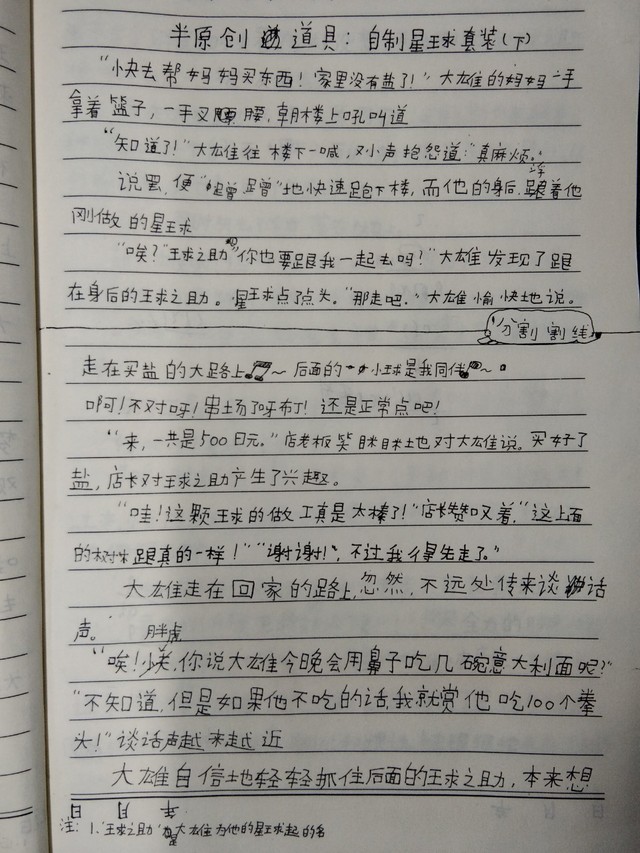 半原创道具：自制星球套装（下）
“快去帮妈妈买东西！家里没有盐了！”大雄的妈妈一手
拿着篮子，一手叉腰，朝楼上吼叫道
“知道了！”大雄往楼下一喊，又小声抱怨道：“真麻烦。”
说罢，便“噔噔”地快速跑下楼，而他的身后，跟着他
刚做的星球
“唉？“球之助”你也要跟我一起去吗？”大雄发现了跟
在身后的球之助。星球点了点头。“那走吧。”大雄愉快地说。
分割割线
走在买盐的大路上～后面的小球是我同伴～
啊！不对呀！串场了呀布丁！还是正常点吧！
“来，一共是500日元。”店老板笑眯眯地对大雄说。买好了
盐，店长对球之助产生了兴趣。
“哇！这颗球的做工真是太棒了！”店长赞叹着，“这上面
的树林跟真的一样！”“谢谢！”，不过我得先走了。”
大雄走在回家的路上，忽然，不远处传来谈话
声。
胖虎
“唉！小夫，你说大雄今晚会用鼻子吃几碗意大利面呢？”
“不知道，但是如果他不吃的话，我就赏他吃100个拳
头！”谈话声越来越近
大雄自信地轻轻抓住后面的球之助，本来想
年 月 日
注：1.“球之助”是大雄为他的星球起的名